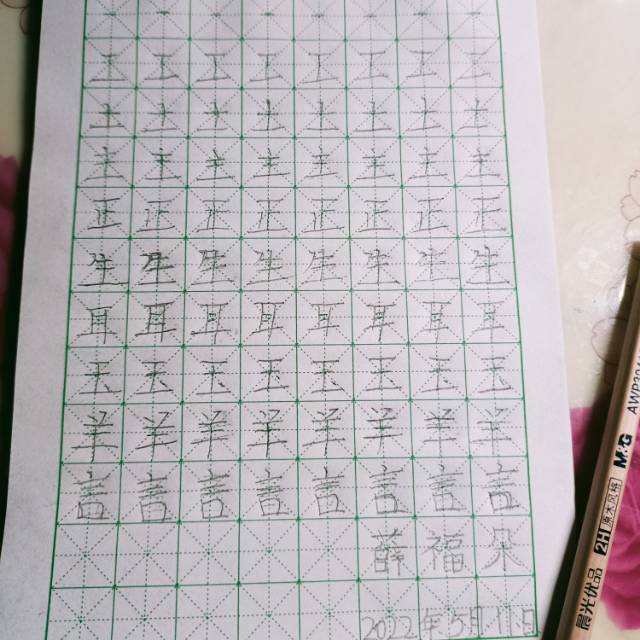 工 工 工 工 工 工 工 工
土 土 土 土 土 土 土 土
主 主 主 主 主 主 主 主
正 正 正 正 正 正 正 正
生 生 生 生 生 生 生 生
耳 耳 耳 耳 耳 耳 耳 耳
玉 玉 玉 玉 玉 玉 玉 玉
羊 羊 羊 羊 羊 羊 羊 羊
言 言 言 言 言 言 言 言
薛 福 朵
2022年5月11日
晨光优品 2H 原木风格 M&G